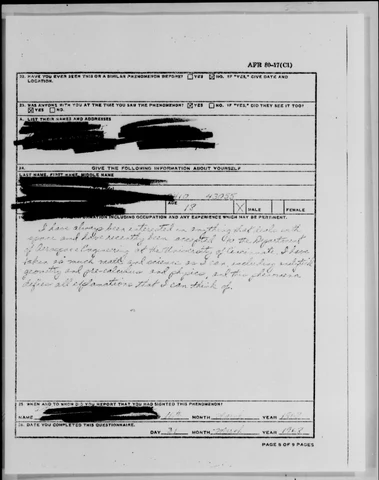 AFR 80-17(C1)
22. HAVE YOU EVER SEEN THIS OR A SIMILAR PHENOMENON BEFORE? YES NO. IF "YES," GIVE DATE AND
LOCATION.
23. WAS ANYONE WITH YOU AT THE TIME YOU SAW THE PHENOMENON? YES NO. IF "YES," DID THEY SEE IT TOO?
YES NO.
A. LIST THEIR NAMES AND ADDRESSES
24. GIVE THE FOLLOWING INFORMATION ABOUT YOURSELF
LAST NAME, FIRST NAME, MIDDLE NAME
AGE 18 X MALE FEMALE
INCLUDING OCCUPATION AND ANY EXPERIENCE WHICH MAY BE PERTINENT.
I have always been interested in anything that flies in the
and have recently been accepted in the Department
of Aerospace Engineering at the University of Cincinnati. I have
taken as much math and science as I can, including analytic
geometry and pre-calculus and physics, and this phenomenon
defies all explanations that I can think of.
25. WHEN AND TO WHOM DID YOU REPORT THAT YOU HAD SIGHTED THIS PHENOMENON?
NAME MONTH YEAR 1968
26. DATE YOU COMPLETED THIS QUESTIONNAIRE.
DAY MONTH YEAR 1968
PAGE 5 OF 5 PAGES